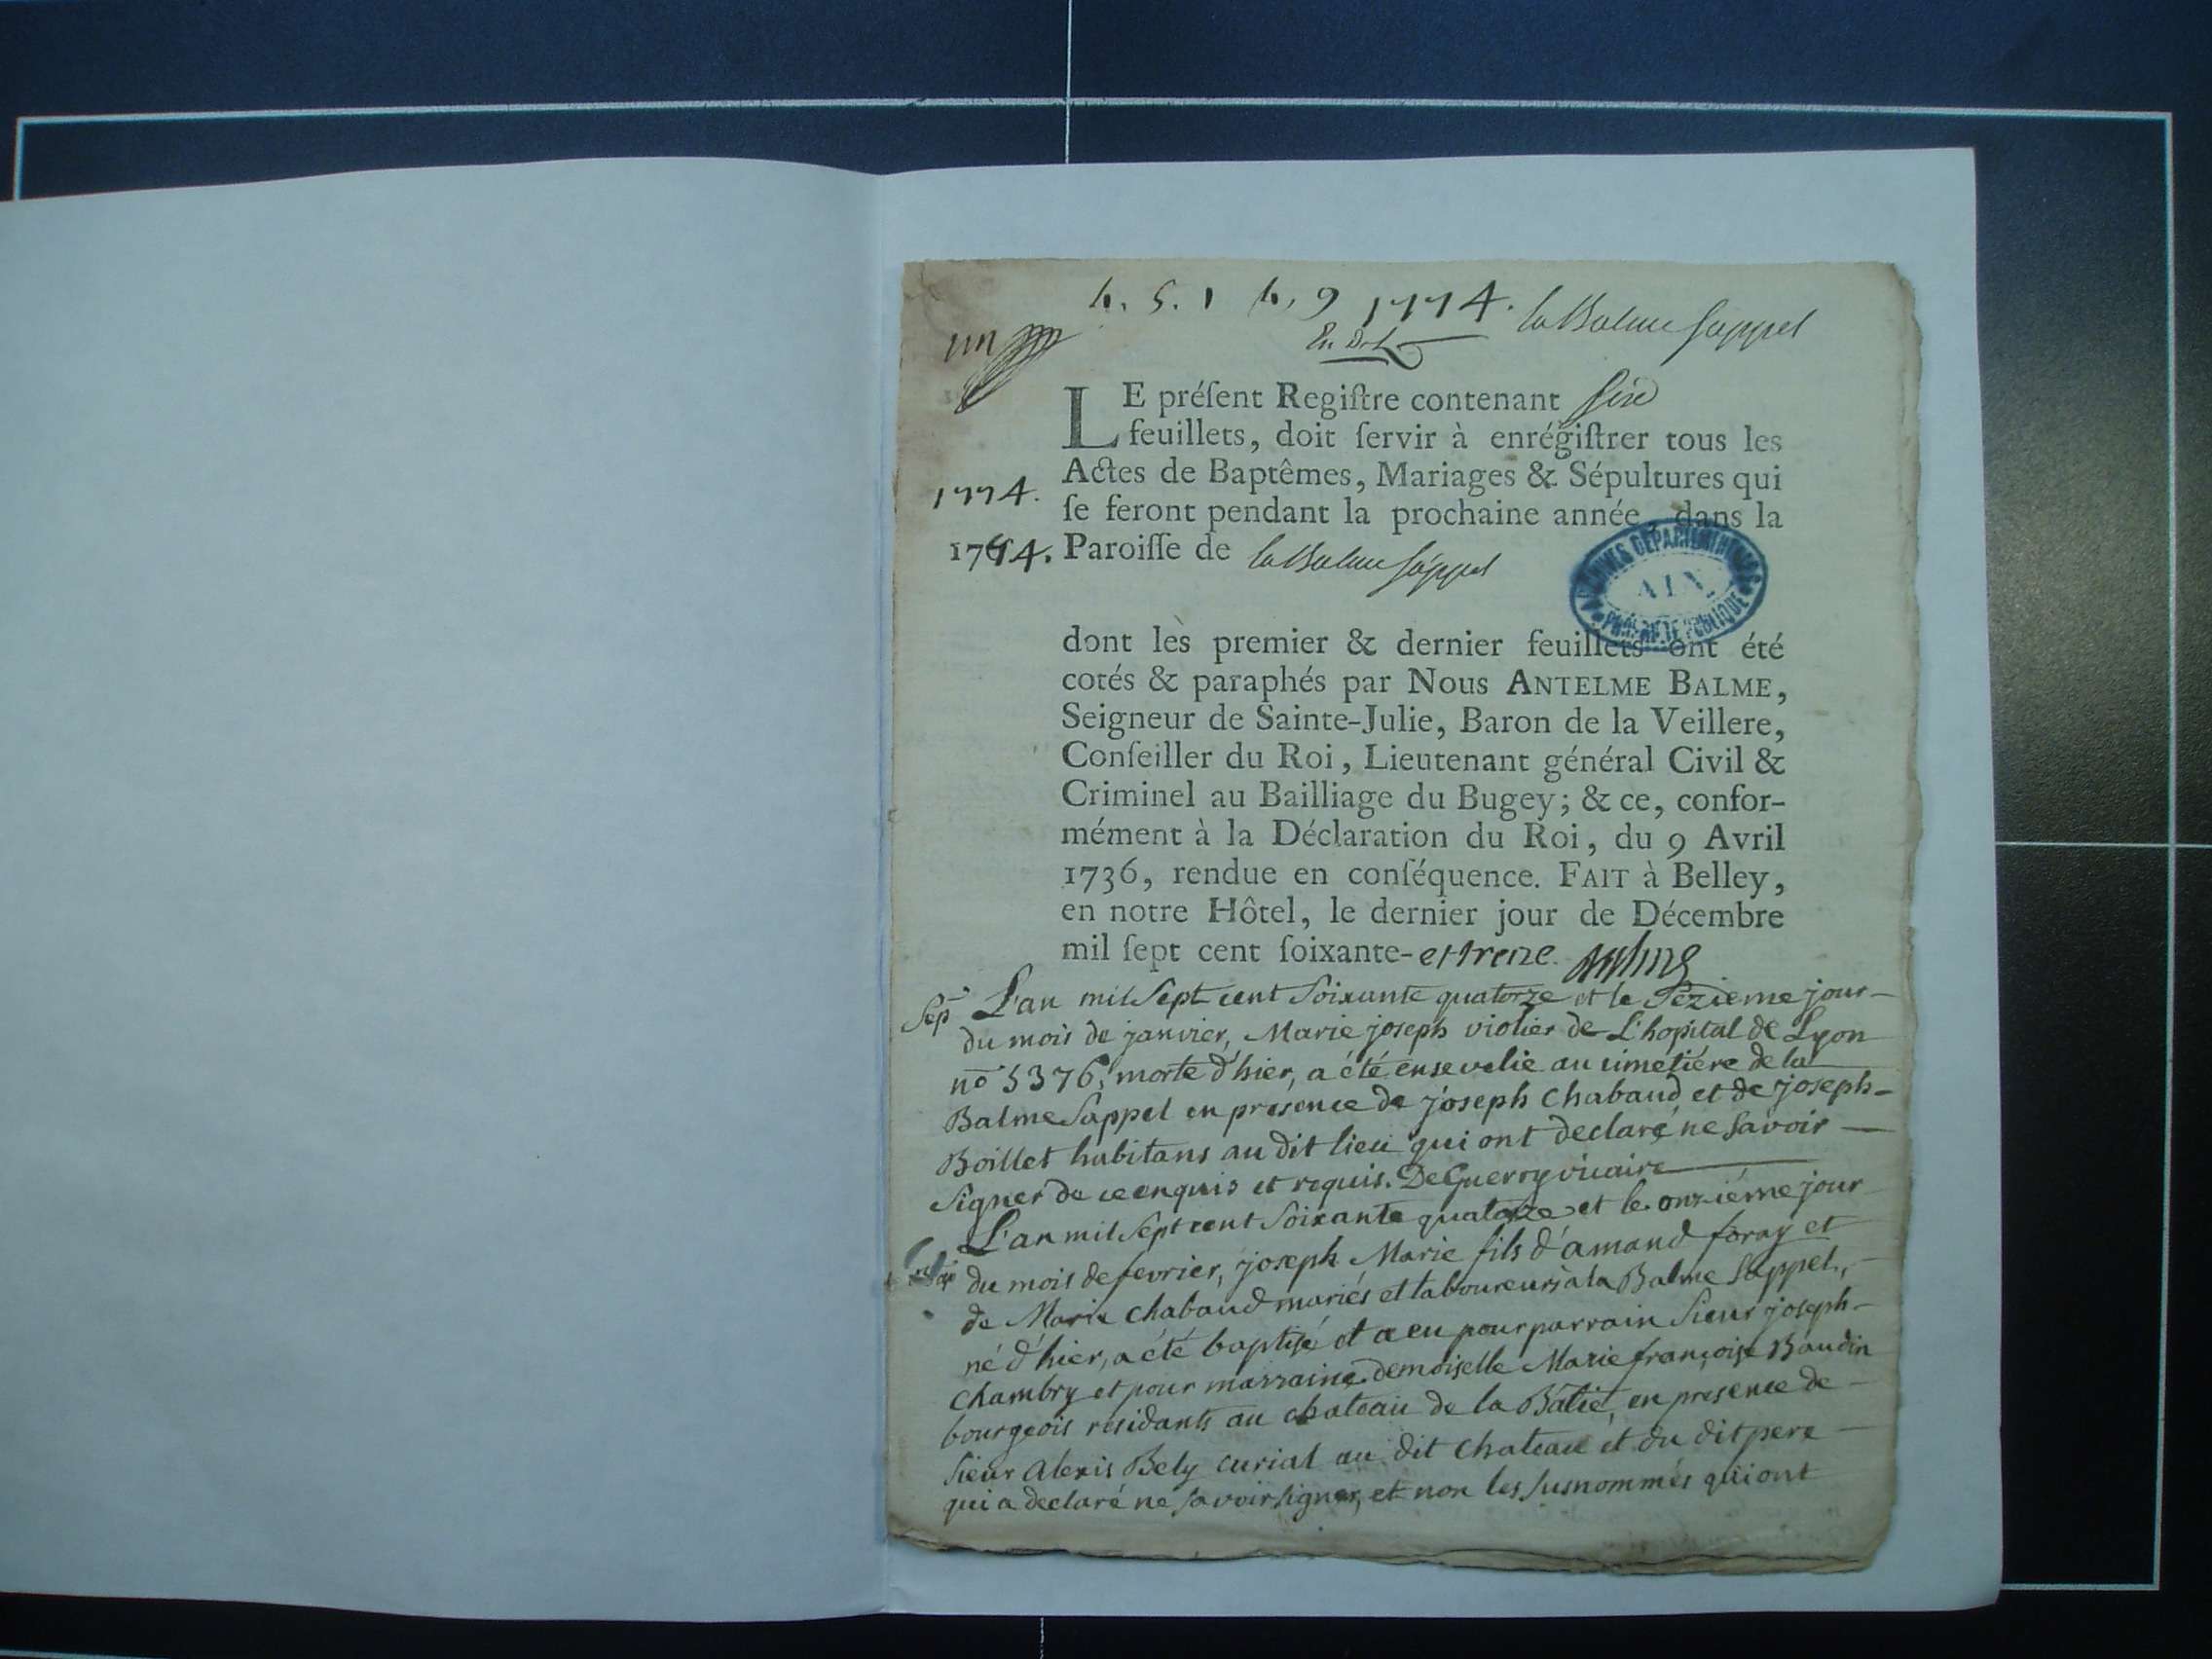 b. 5. 1 b. 9 1774. la Balme Sappel
un
LE préſent Regiſtre contenant Six
feuillets, doit ſervir à enrégiſtrer tous les
Actes de Baptêmes, Mariages & Sépultures qui
1774. ſe feront pendant la prochaine année, dans la
1774. Paroiſſe de la Balme Sappel
ARCHIVES DÉPARTEMENTALES
AIN
PROPRIÉTÉ PUBLIQUE
dont les premier & dernier feuillets ont été
cotés & paraphés par Nous ANTELME BALME,
Seigneur de Sainte-Julie, Baron de la Veillere,
Conſeiller du Roi, Lieutenant général Civil &
Criminel au Bailliage du Bugey; & ce, confor-
mément à la Déclaration du Roi, du 9 Avril
1736, rendue en conſéquence. FAIT à Belley,
en notre Hôtel, le dernier jour de Décembre
mil ſept cent ſoixante-et treize. Balme
Sep. L'an mil Sept cent Soixante quatorze et le Sezieme jour
du mois de janvier, Marie joseph violier de L'hopital de Lyon
no 5376, morte d'hier, a été ensevelie au cimetiére de la
Balme Sappel en presence de joseph Chabaud et de joseph
Boillet habitans au dit lieu qui ont declaré ne Savoir
Signer de ce enquis et requis. DeGuerry vicaire
L'an mil Sept cent Soixante quatorze et le onziéme jour
du mois de fevrier, joseph Marie fils d'amand foray et
de Marie Chabaud mariés et laboureurs à la Balme Sappel,
né d'hier, a été baptisé et a eu pour parrain Sieur joseph
Chambry et pour marraine demoiselle Marie françoise Baudin
bourgeois residants au chateau de la Bâtie, en présence de
Sieur Alexis Bely curial au dit Chateau et du dit pere
qui a declaré ne savoir signer, et non les susnommés qui ont